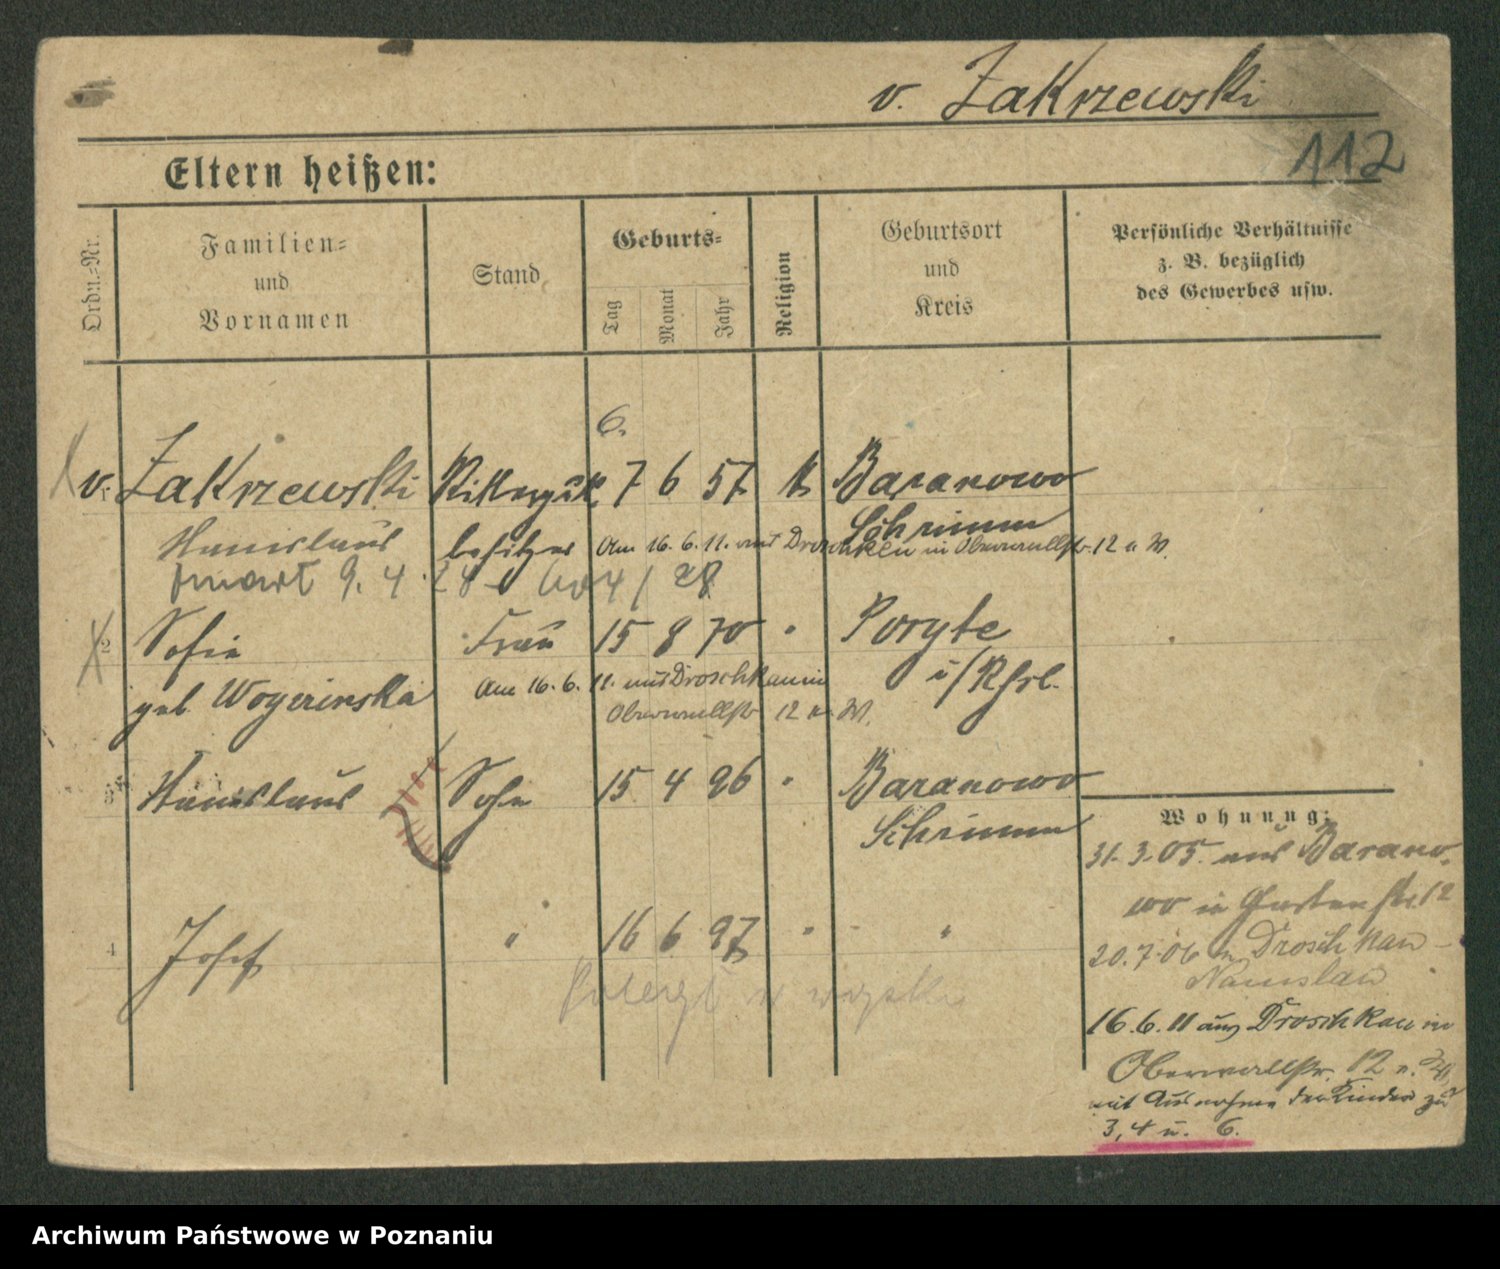 v. Zakrzewski
112
Eltern heißen:
Ordn.-Nr.
Familien=
und
Vornamen
Stand
Geburts=
Tag
Monat
Jahr
Religion
Geburtsort
und
Kreis
Persönliche Verhältnisse
z. B. bezüglich
des Gewerbes usw.
6.
v. Zakrzewski Rittergut 7 6 57 k Baranowo
Stanislaus besitzer Schrimm
Am 16. 6. 11. aus Droschkau in Oberwallstr. 12 u. W.
zmarł 9. 4. 28
2 Sofie Frau 15 8 70 " Poryte
geb. i/Rßl.
Am 16. 6. 11. aus Droschkau in
Oberwallstr 12 u. W.
3 Stanislaus Sohn 15 4 96 " Baranowo
Schrimm
4 Josef " 16 6 97 " "
Wohnung:
31.3.05. aus Barano-
wo in Gartenstr. 12
20.7.06 n. Droschkau -
Namslau
16.6.11 aus Droschkau in
Oberwallstr. 12 u. W.
mit Ausnahme der Kinder zu
3, 4 u. 6.
Archiwum Państwowe w Poznaniu